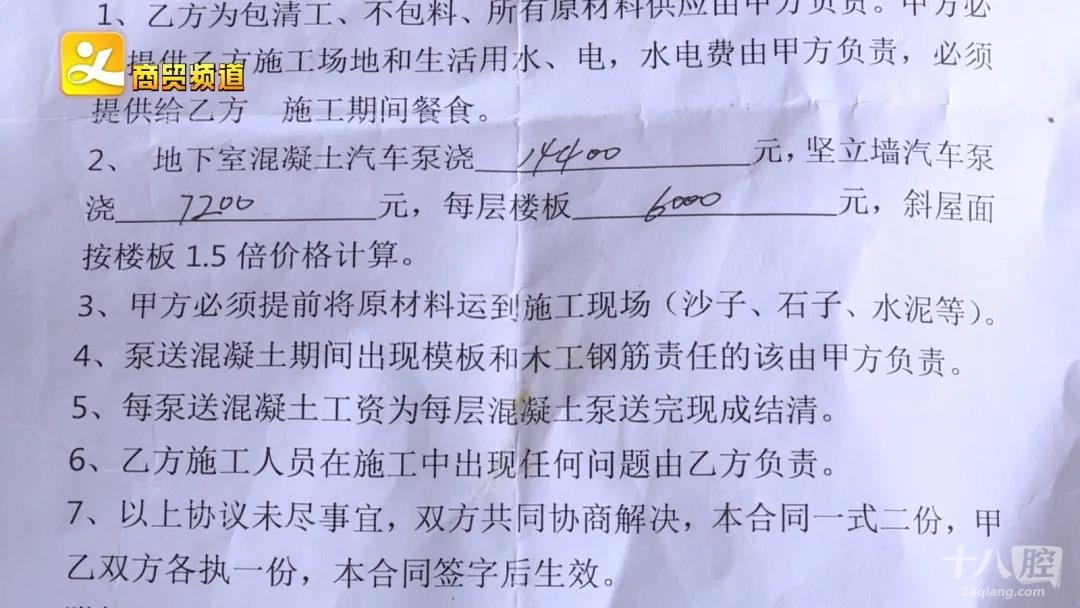 1、乙方为包清工、不包料、所有原材料供应由甲方负责。甲方必
提供乙方施工场地和生活用水、电，水电费由甲方负责，必须
商贸频道
提供给乙方 施工期间餐食。
2、 地下室混凝土汽车泵浇 14400 元，坚立墙汽车泵
浇 7200 元，每层楼板 6000 元，斜屋面
按楼板 1.5 倍价格计算。
3、甲方必须提前将原材料运到施工现场（沙子、石子、水泥等）。
4、泵送混凝土期间出现模板和木工钢筋责任的该由甲方负责。
5、每泵送混凝土工资为每层混凝土泵送完现成结清。
6、乙方施工人员在施工中出现任何问题由乙方负责。
7、以上协议未尽事宜，双方共同协商解决，本合同一式二份，甲
乙双方各执一份，本合同签字后生效。
十八腔
18qiang.com